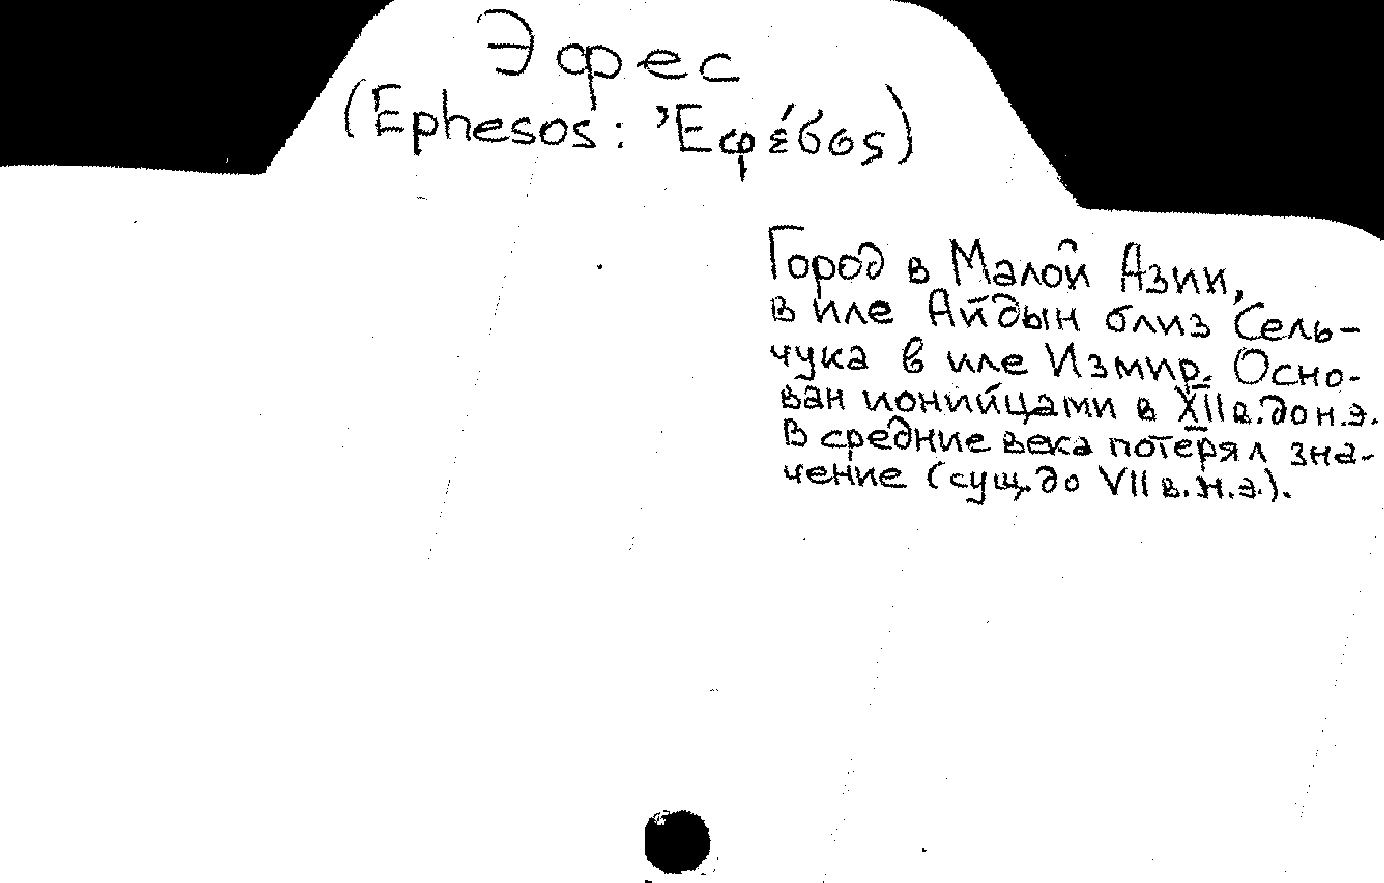 Эфес
(Ephesos: Ἐφέσος)
Город в Малой Азии,
в иле Айдын близ Сель-
чука в иле Измир. Осно-
ван ионийцами в XII в. до н.э.
В средние века потерял зна-
чение (сущ. до VII в. н.э.).